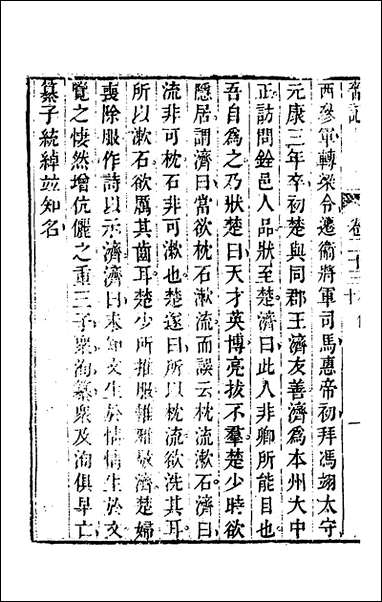 晉記 卷二十三
西參軍轉梁令遷衛將軍司馬惠帝初拜馮翊太守
元康三年卒初楚與同郡王濟友善濟爲本州大中
正訪問銓邑人品狀至楚濟曰此人非卿所能目也
吾自爲之乃狀楚曰天才英博亮拔不羣楚少時欲
隱居謂濟曰當欲枕石漱流而誤云枕流漱石濟曰
流非可枕石非可漱也楚遂曰所以枕流欲洗其耳
所以漱石欲厲其齒耳楚少所推服雅敬濟楚婦
喪除服作詩以示濟濟曰未知文生於情情生於文
覽之悽然增伉儷之重三子衆洵纂衆及洵俱早亡
纂子統綽竝知名